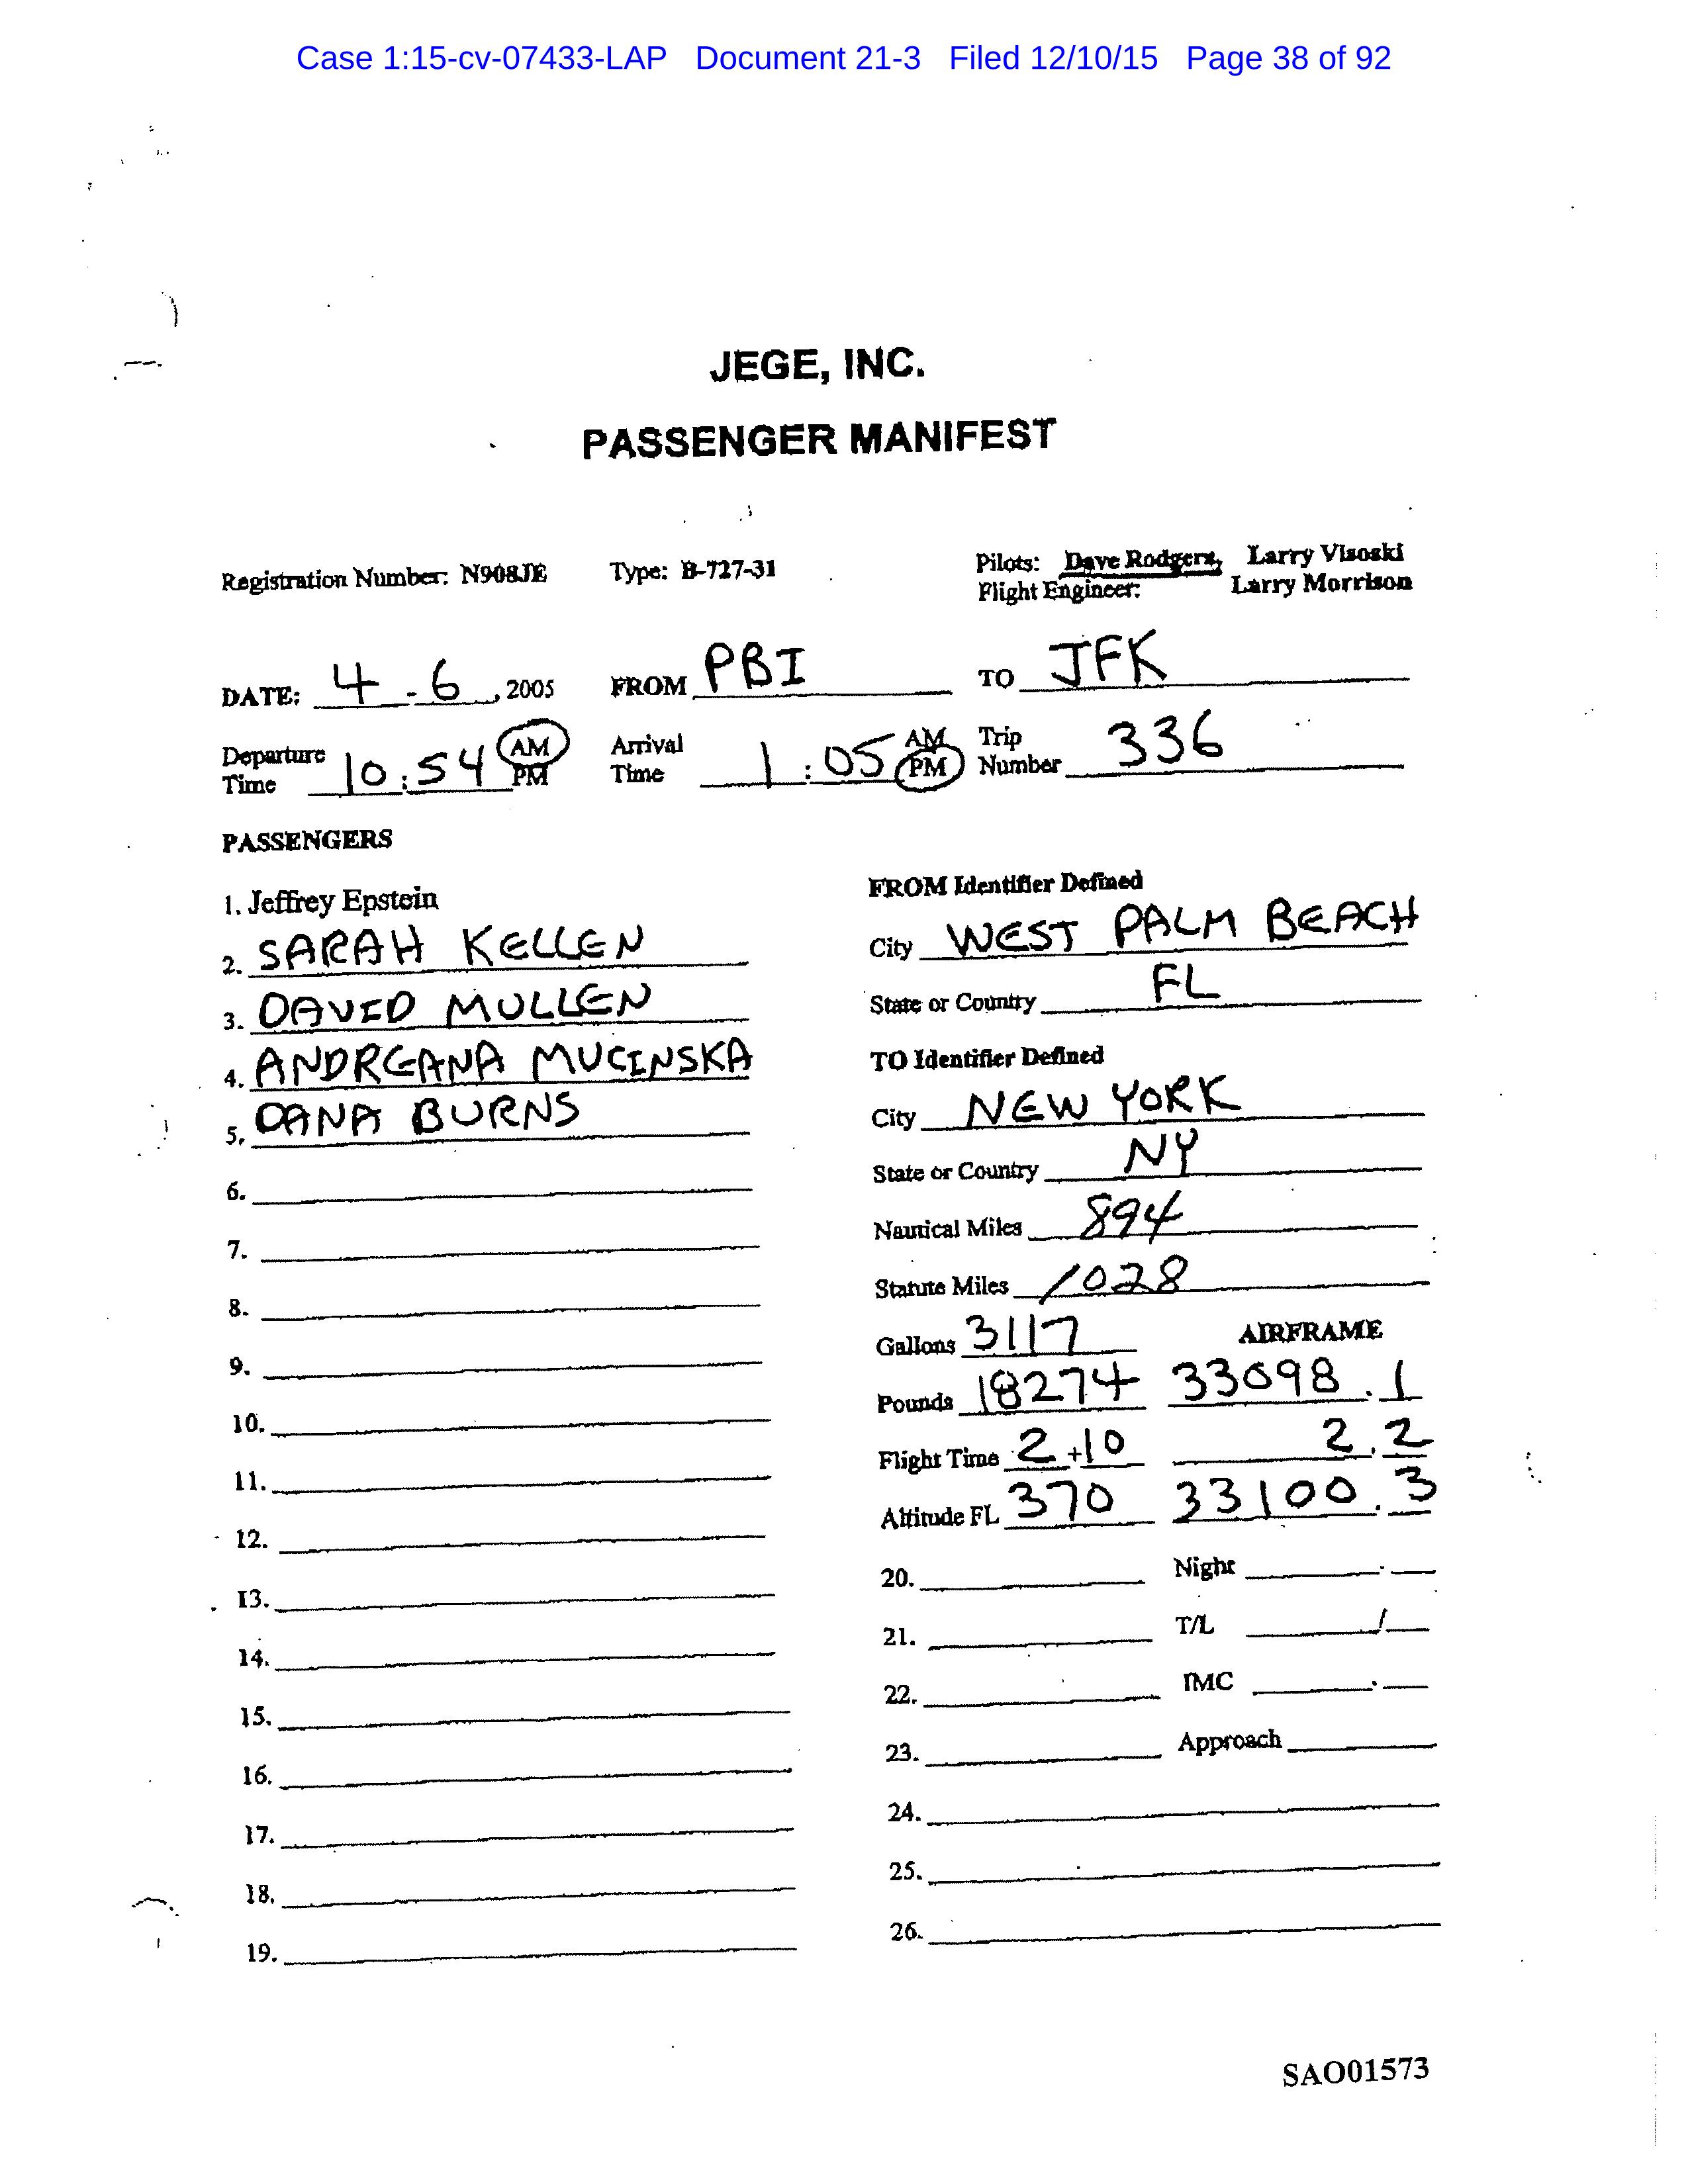 Case 1:15-cv-07433-LAP Document 21-3 Filed 12/10/15 Page 38 of 92
JEGE, INC.
PASSENGER MANIFEST
Registration Number: N908JE Type: B-727-31 Pilots: Dave Rodgers, Larry Visoski
Flight Engineer: Larry Morrison
DATE: 4 - 6, 2005 FROM PBI TO JFK
Departure Time 10:54 AM PM Arrival Time 1:05 AM PM Trip Number 336
PASSENGERS
1. Jeffrey Epstein
2. SARAH KELLEN
3. DAVID MULLEN
4. ANDREANA MUCINSKA
5. DANA BURNS
6.
7.
8.
9.
10.
11.
12.
13.
14.
15.
16.
17.
18.
19.
FROM Identifier Defined
City WEST PALM BEACH
State or Country FL
TO Identifier Defined
City NEW YORK
State or Country NY
Nautical Miles 894
Statute Miles 1028
Gallons 3117 AIRFRAME
Pounds 18274 33098.1
Flight Time 2+10 2.2
Altitude FL 370 33100.3
20. Night
21. T/L /
22. IMC
23. Approach
24.
25.
26.
SAO01573